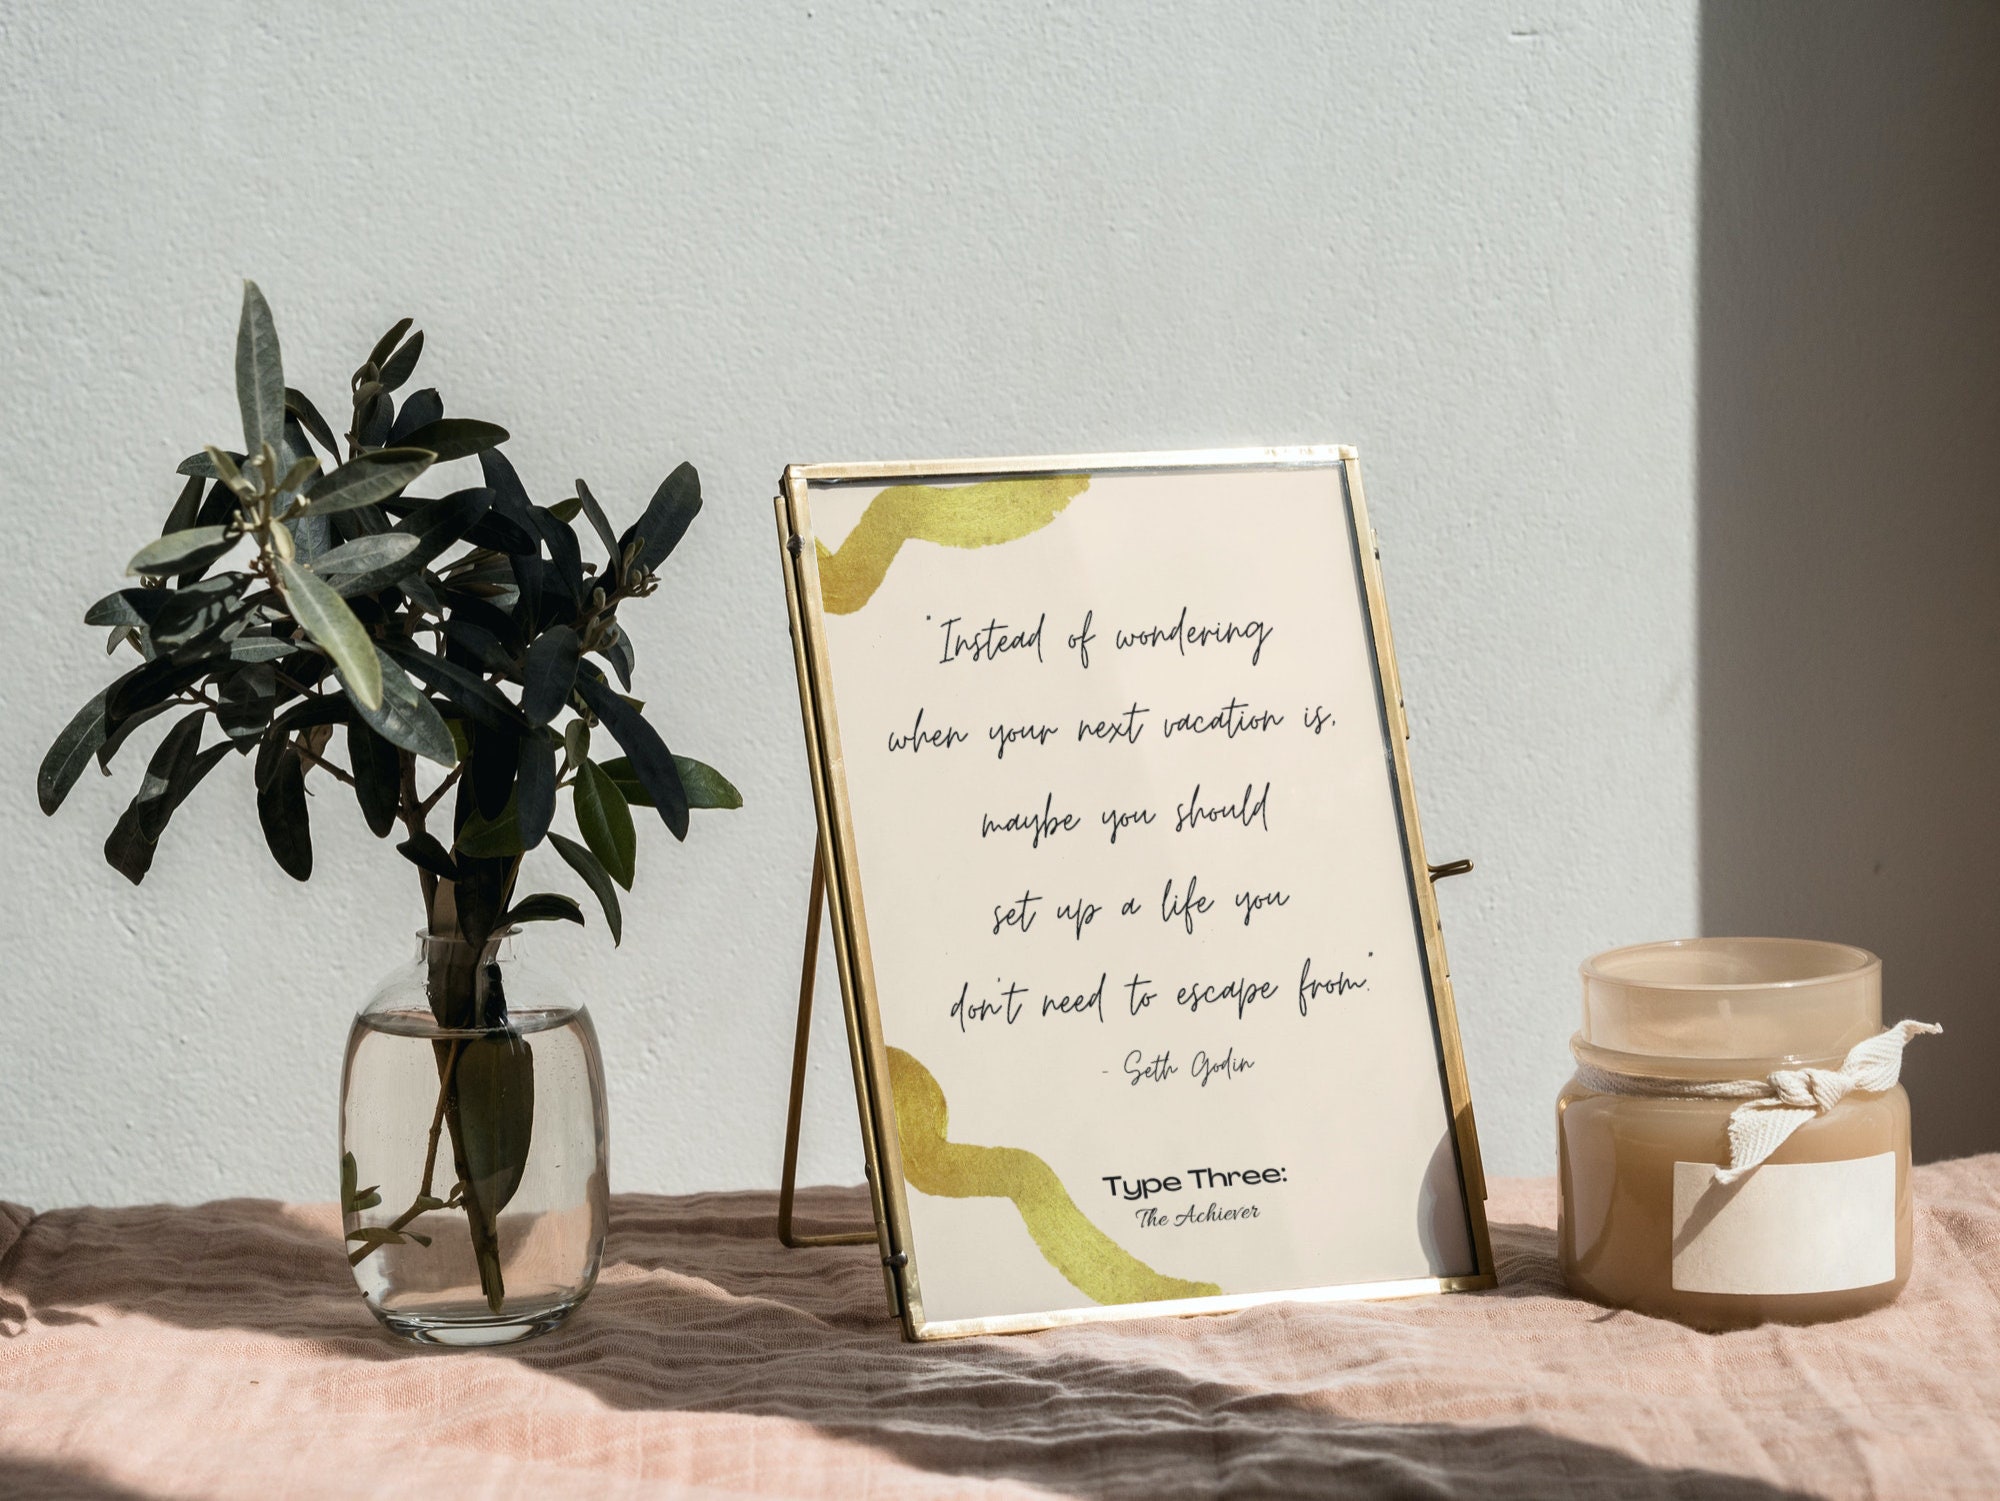 "Instead of wondering
when your next vacation is,
maybe you should
set up a life you
don't need to escape from."
- Seth Godin
Type Three:
The Achiever